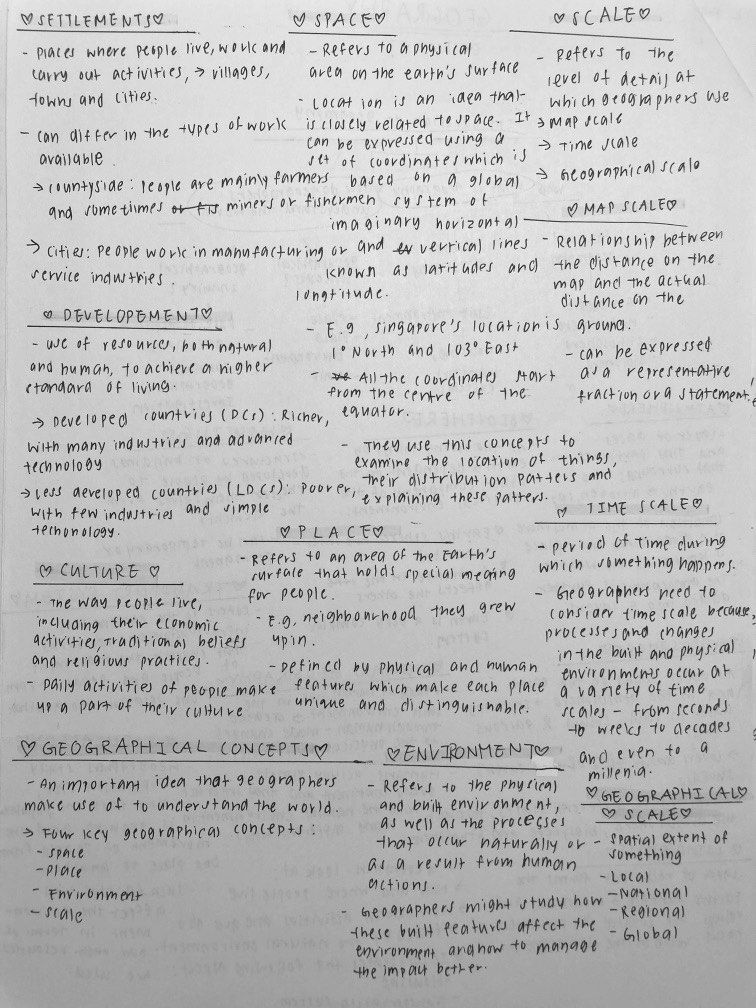 ♡SETTLEMENTS♡
- Places where people live, work and
carry out activities, → villages,
towns and cities.
- can differ in the types of work
available.
→ countryside: People are mainly farmers
and sometimes miners or fishermen
→ Cities: People work in manufacturing or
service industries.
♡ DEVELOPEMENT♡
- use of resources, both natural
and human, to achieve a higher
standard of living.
→ Developed countries (DCs): Richer,
with many industries and advanced
technology
→ Less developed countries (LDCs): poorer,
with few industries and simple
techonology.
♡ CULTURE ♡
- The way people live,
including their economic
activities, traditional beliefs
and religious practices.
- Daily activities of people make
up a part of their culture
♡ GEOGRAPHICAL CONCEPTS♡
- An important idea that geographers
make use of to understand the world.
→ Four key geographical concepts:
- space
- place
- Environment
- scale
♡ SPACE♡
- Refers to a physical
area on the earth's surface
- Location is an idea that
is closely related to space. It
can be expressed using a
set of coordinates which is
based on a global
system of
imaginary horizontal
and vertical lines
known as latitudes and
longtitude.
- E.g, Singapore's location is
1° North and 103° East
- All the coordinates start
from the centre of the
equator.
- They use this concepts to
examine the location of things,
their distribution patters and
explaining these patters.
♡ PLACE♡
- Refers to an area of the Earth's
surface that holds special meaning
for people.
- E.g, neighbourhood they grew
up in.
- Defined by physical and human
features which make each place
unique and distinguishable.
♡ENVIRONMENT♡
- Refers to the physical
and built environment,
as well as the processes
that occur naturally or
as a result from human
actions.
- Geographers might study how
these built features affect the
environment and how to manage
the impact better.
♡ SCALE♡
- Refers to the
level of detail at
which geographers use
→ Map scale
→ Time scale
→ Geographical scale
♡ MAP SCALE♡
- Relationship between
the distance on the
map and the actual
distance on the
ground.
- can be expressed
as a representative
fraction or a statement.
♡ TIME SCALE♡
- period of time during
which something happens.
- Geographers need to
consider time scale because,
processes and changes
in the built and physical
environments occur at
a variety of time
scales - from seconds
to weeks to decades
and even to a
millenia.
♡GEOGRAPHICAL♡
♡ SCALE♡
- spatial extent of
something
- Local
- National
- Regional
- Global